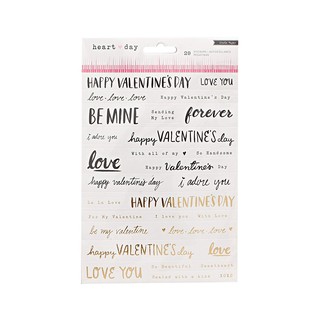 heart day 29
HAPPY VALENTINE'S DAY LOVE YOU
love·love·love Happy Valentine's Day
BE MINE Sending My Love forever
i adore you happy VALENTINE'S day
With all of my So Handsome
love Happy valentine's Day
happy valentine's day i adore you
So In Love HAPPY VALENTINE'S DAY
For My Valentine I love you With Love
be my valentine love·love·love
happy VALENTINE'S day love
LOVE YOU So Beautiful Sweetheart
Sealed with a kiss XOXO